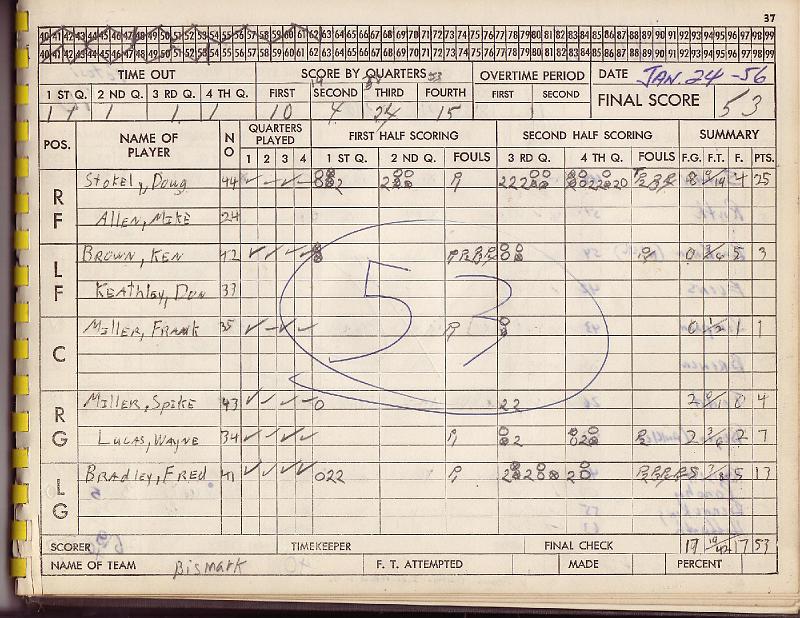 37
40 41 42 43 44 45 46 47 48 49 50 51 52 53 54 55 56 57 58 59 60 61 62 63 64 65 66 67 68 69 70 71 72 73 74 75 76 77 78 79 80 81 82 83 84 85 86 87 88 89 90 91 92 93 94 95 96 97 98 99
40 41 42 43 44 45 46 47 48 49 50 51 52 53 54 55 56 57 58 59 60 61 62 63 64 65 66 67 68 69 70 71 72 73 74 75 76 77 78 79 80 81 82 83 84 85 86 87 88 89 90 91 92 93 94 95 96 97 98 99
TIME OUT SCORE BY QUARTERS OVERTIME PERIOD DATE JAN. 24 -56
1 ST Q. 2 ND Q. 3 RD Q. 4 TH Q. FIRST SECOND THIRD FOURTH FIRST SECOND FINAL SCORE 53
10 4 24 15
POS. NAME OF PLAYER NO QUARTERS PLAYED FIRST HALF SCORING SECOND HALF SCORING SUMMARY
1 2 3 4 1 ST Q. 2 ND Q. FOULS 3 RD Q. 4 TH Q. FOULS F.G. F.T. F. PTS.
RF Stokel, Doug 44 8 9/14 4 25
Allen, Mike 24
LF Brown, Ken 42 0 5 3
Keathley, Don 33
C Miller, Frank 35 0 1/2 1 1
RG Miller, Spike 43 0 22 2 0/1 0 4
Lucas, Wayne 34 2 2 7
LG Bradley, Fred 41 022 5 5 13
53
SCORER TIMEKEEPER FINAL CHECK 17 19/42 17 53
NAME OF TEAM Bismark F. T. ATTEMPTED MADE PERCENT